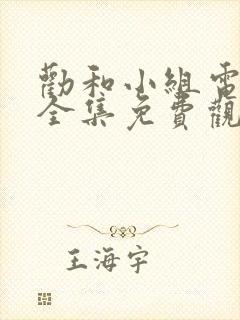 勸和小組電
全集免費觀
王海宇